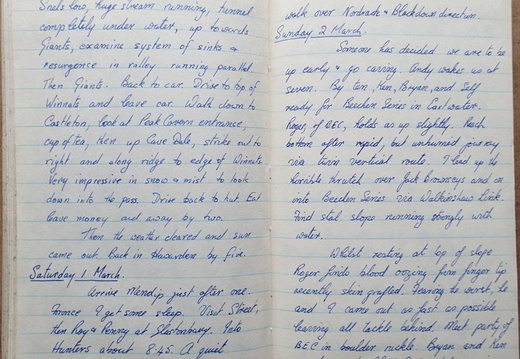 Snels too, huge stream running, tunnel
completely under water, up towards
Giants, examine system of sinks &
resurgence in valley running parallel.
Then Giants. Back to car. Drive to top of
Winnats and leave car. Walk down to
Castleton, look at Peak Cavern entrance,
cup of tea, then up Cave Dale, strike out to
right and along ridge to edge of Winnats
Very impressive in snow & mist to look
down into the pass. Drive back to hut. Eat
leave money and away by two.
Then the weather cleared and sun
came out. Back in Hawardene by five.
Saturday 1 March.
Arrive Mendip just after one.
I get some sleep. Visit Street,
then Roy & Penny at Glastonbury. Into
Hunters about 8.45. A quiet
walk over Nordrach & Blackdown direction.
Sunday 2 March.
Someone has decided we are to be
up early & go caving. Andy wakes us at
seven. By ten, Ken, Bryan, and self
ready for Beuden Series in Eastwater.
Roger, of BEC, holds us up slightly. Reach
bottom after rapid, but unhurried journey
via twin vertical route. I lead up the
horrible thrutch over Jack Browseys and on
into Beuden Series via Walkinshaw Link.
Find stal slope running strongly with
water.
Whilst resting at top of slope
Roger finds blood oozing from finger tip
recently skin grafted. Fearing the worst he
and I came out as fast as possible
leaving all tackle behind. Meet party of
BEC in boulder ruckle. Bryan and Ken